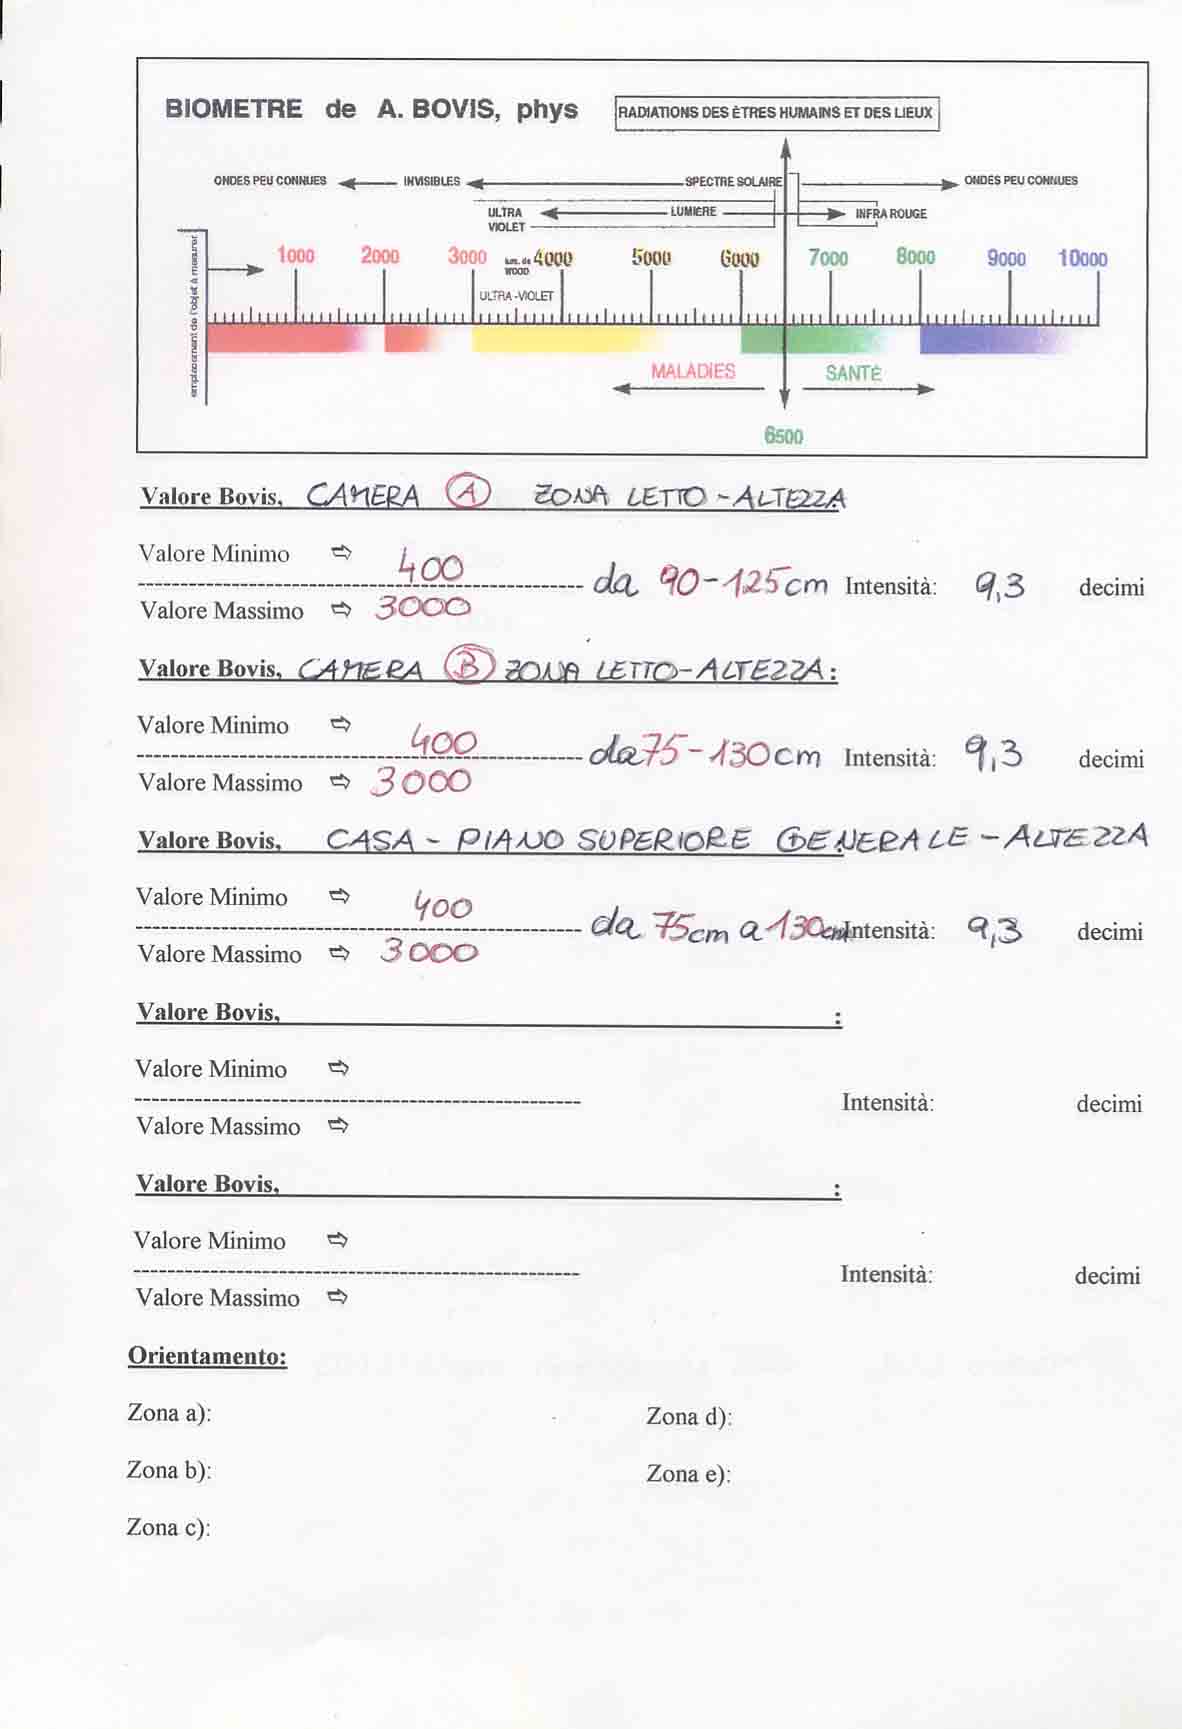 BIOMETRE de A. BOVIS, phys
RADIATIONS DES ÊTRES HUMAINS ET DES LIEUX
ONDES PEU CONNUES INVISIBLES SPECTRE SOLAIRE ONDES PEU CONNUES
ULTRA VIOLET LUMIERE INFRA ROUGE
emplacement de l'objet à mesurer
1000 2000 3000 lum. de WOOD 4000 5000 6000 7000 8000 9000 10000
ULTRA-VIOLET
MALADIES SANTÉ
6500
Valore Bovis, CAMERA A ZONA LETTO - ALTEZZA
Valore Minimo ⇨ 400
da 90-125cm Intensità: 9,3 decimi
Valore Massimo ⇨ 3000
Valore Bovis, CAMERA B ZONA LETTO-ALTEZZA:
Valore Minimo ⇨ 400
da 75-130cm Intensità: 9,3 decimi
Valore Massimo ⇨ 3000
Valore Bovis, CASA - PIANO SUPERIORE GENERALE - ALTEZZA
Valore Minimo ⇨ 400
da 75cm a 130cm Intensità: 9,3 decimi
Valore Massimo ⇨ 3000
Valore Bovis, :
Valore Minimo ⇨
Intensità: decimi
Valore Massimo ⇨
Valore Bovis, :
Valore Minimo ⇨
Intensità: decimi
Valore Massimo ⇨
Orientamento:
Zona a): Zona d):
Zona b): Zona e):
Zona c):